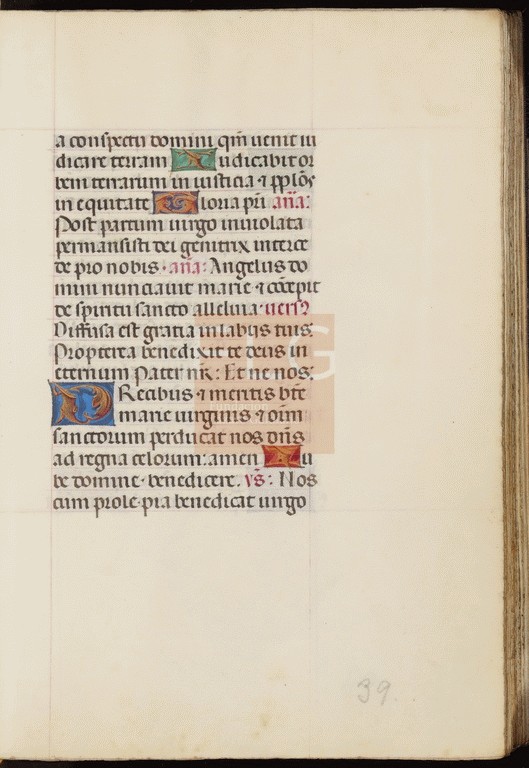 a conspectu domini qm̄ uenit iu
dicare terram Iudicabit or
bem terrarum in iusticia ⁊ pp̄lōs
in equitate Gloria pr̄i an̄a:
Post partum uirgo inuiolata
permansisti dei genitrix interce
de pro nobis · an̄a: Angelus do
mini nunciauit marie ⁊ cōcepit
de spiritu sancto alleluia · uers?
Diffusa est gratia in labijs tuis.
Propterea benedixit te deus in
eternum Pater nr̄: Et ne nos:
PRecibus ⁊ meritis bt̄e
marie uirginis ⁊ oīm
sanctorum perducat nos dn̄s
ad regna celorum: amen Iu
be domine · benedicere. vs̄: Nos
cum prole pia benedicat uirgo
LG
39.